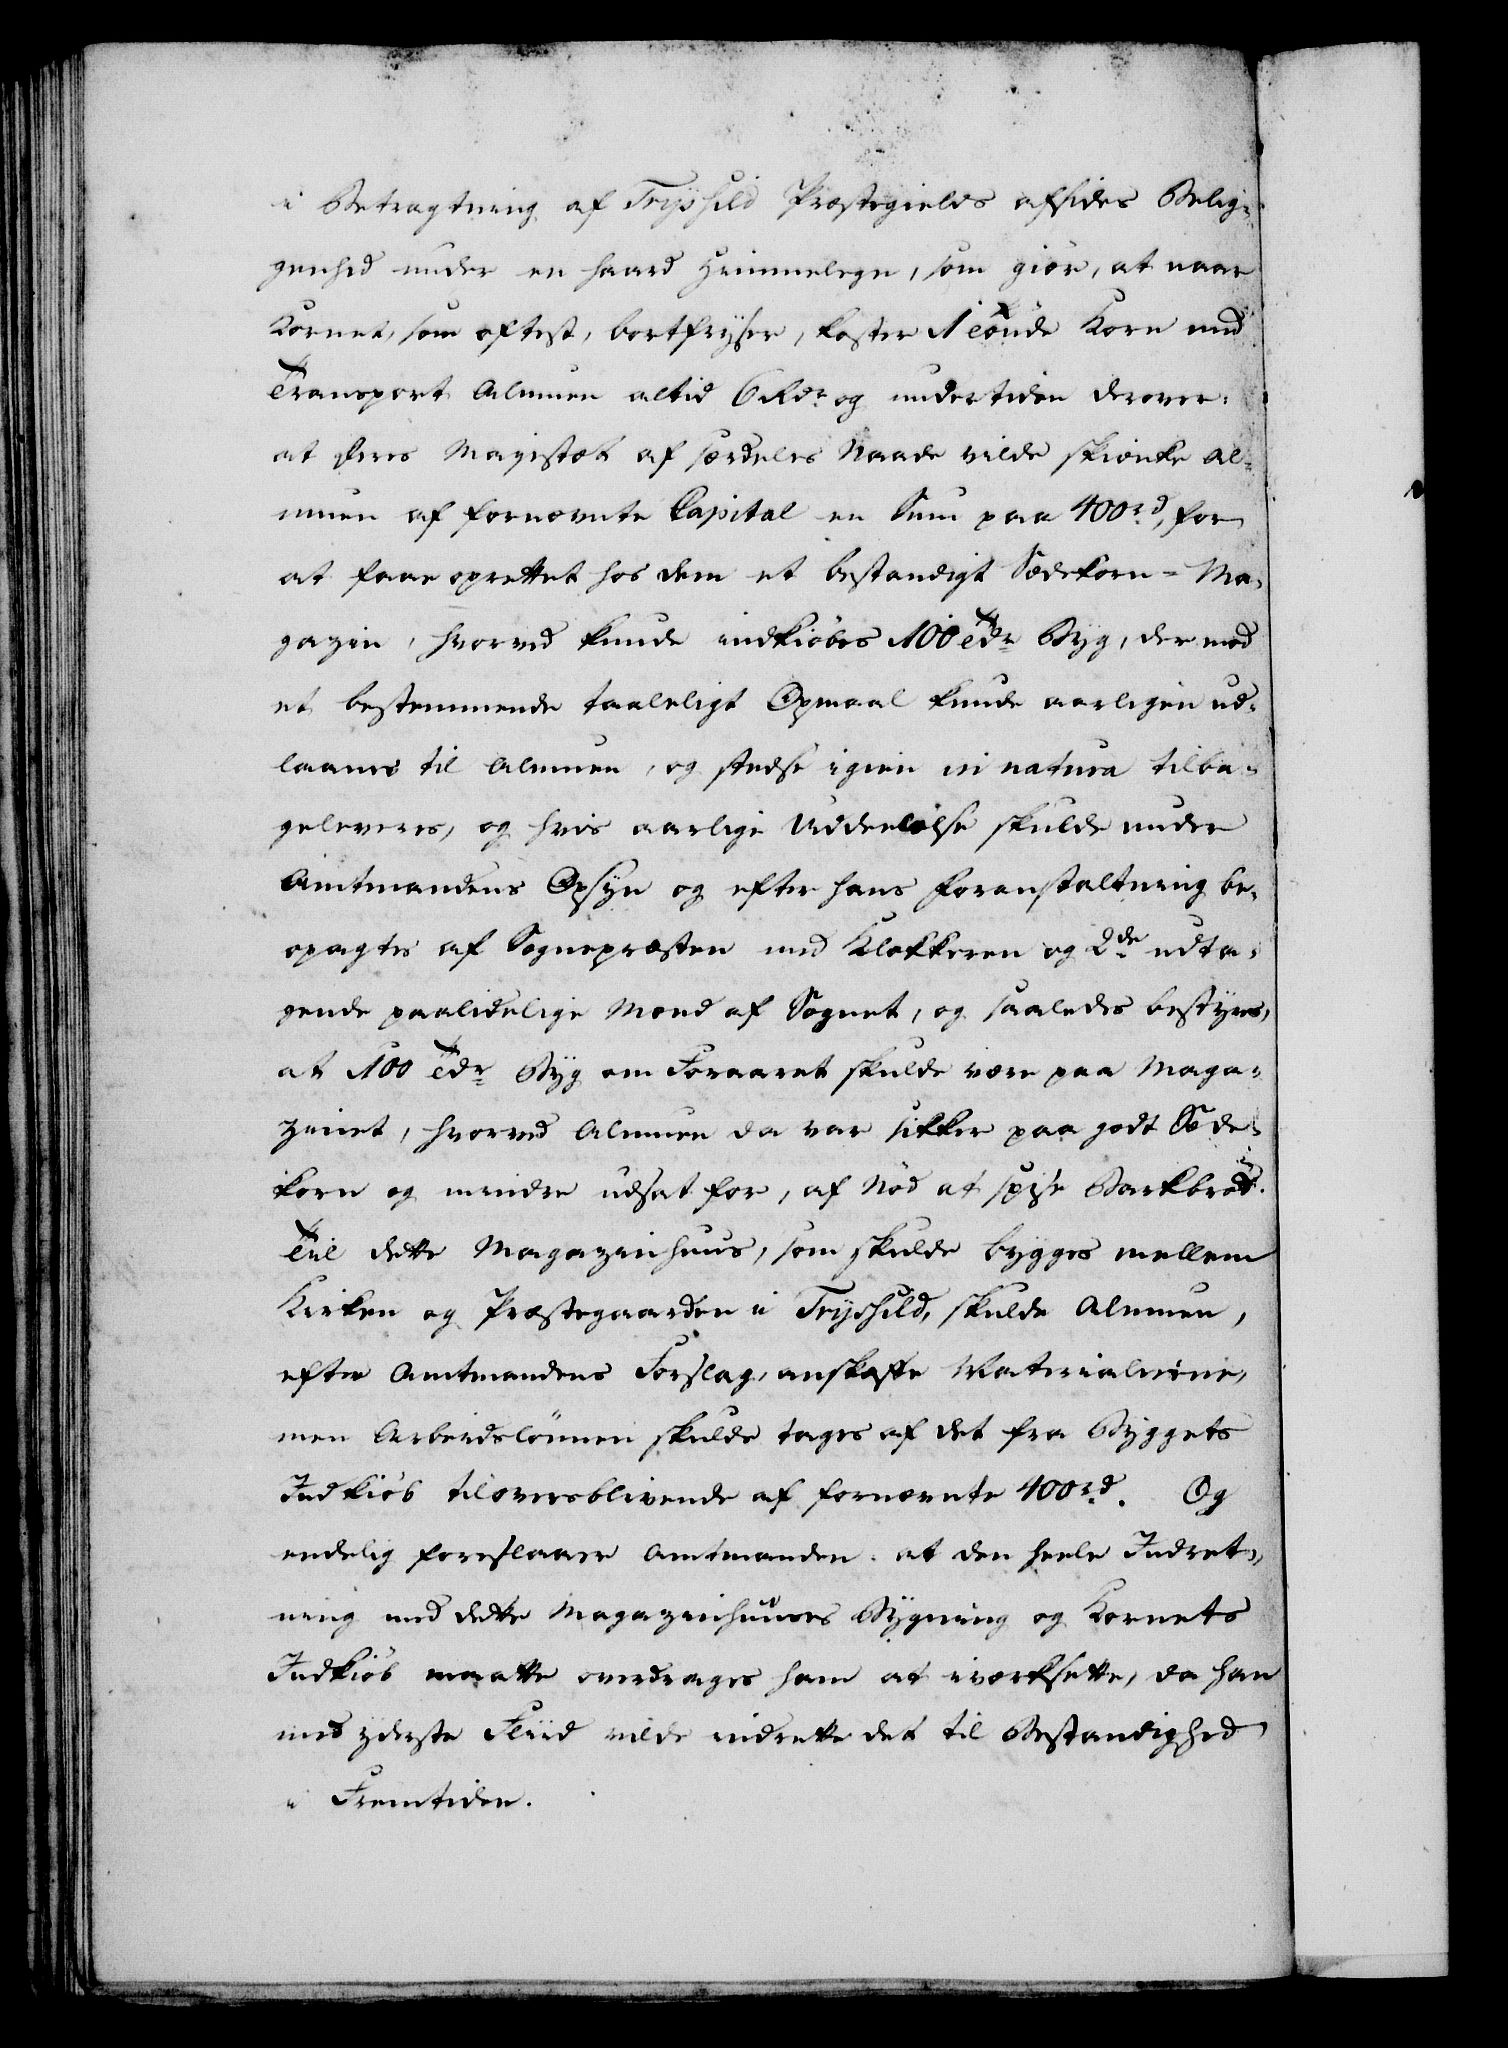 i Betragtning af Trysild Præstegields afsides Belig-
genhed under en haard Himmelegn, som giör, at naar
Kornet, som oftest, bortfryser, koster 1 Tönde Korn med
Transport Almuen altid 6 Rdr. og undertiden derover:
at Deres Majestæt af særdeles Naade vilde skienke Al-
muen af fornævnte Capital en Sum paa 400 rd, for
at faae oprettet hos dem et bestandigt Sædekorn-Ma-
gazin, hvorved kunde indkiöbes 100 Tdr Byg, der med
et bestemmende taaleligt Opmaal kunde aarligen ud-
laanes til Almuen, og stedse igien in natura tilba-
geleveres, og hvis aarlige Uddeelelse skulde under
Amtmandens Opsyn og efter hans Foranstaltning be-
opagtes af Sognepræsten med Klokkeren og 2de udta-
gende paalidelige Mænd af Sognet, og saaledes bestyres,
at 100 Tdr Byg om Foraaret skulde være paa Maga-
zinet, hvorved Almuen da var sikker paa godt Sæde-
korn og mindre udsat for, af Nød at spise Barkbröd.
Til dette Magazinhuus, som skulde bygges mellem
Kirken og Præstegaarden i Trysild, skulde Almuen,
efter Amtmandens Forslag, anskaffe Materialierne,
men Arbeidslönnen skulde tages af det fra Byggets
Indkiöb tiloversblivende af fornævnte 400 rd. Og
endelig foreslaaer Amtmanden: at den heele Indret-
ning med dette Magazinhuuses Bygning og Kornets
Indkiöb maatte overdrages ham at iværksette, da han
med yderste Fliid vilde indrette det til Bestandighed
i Fremtiden.